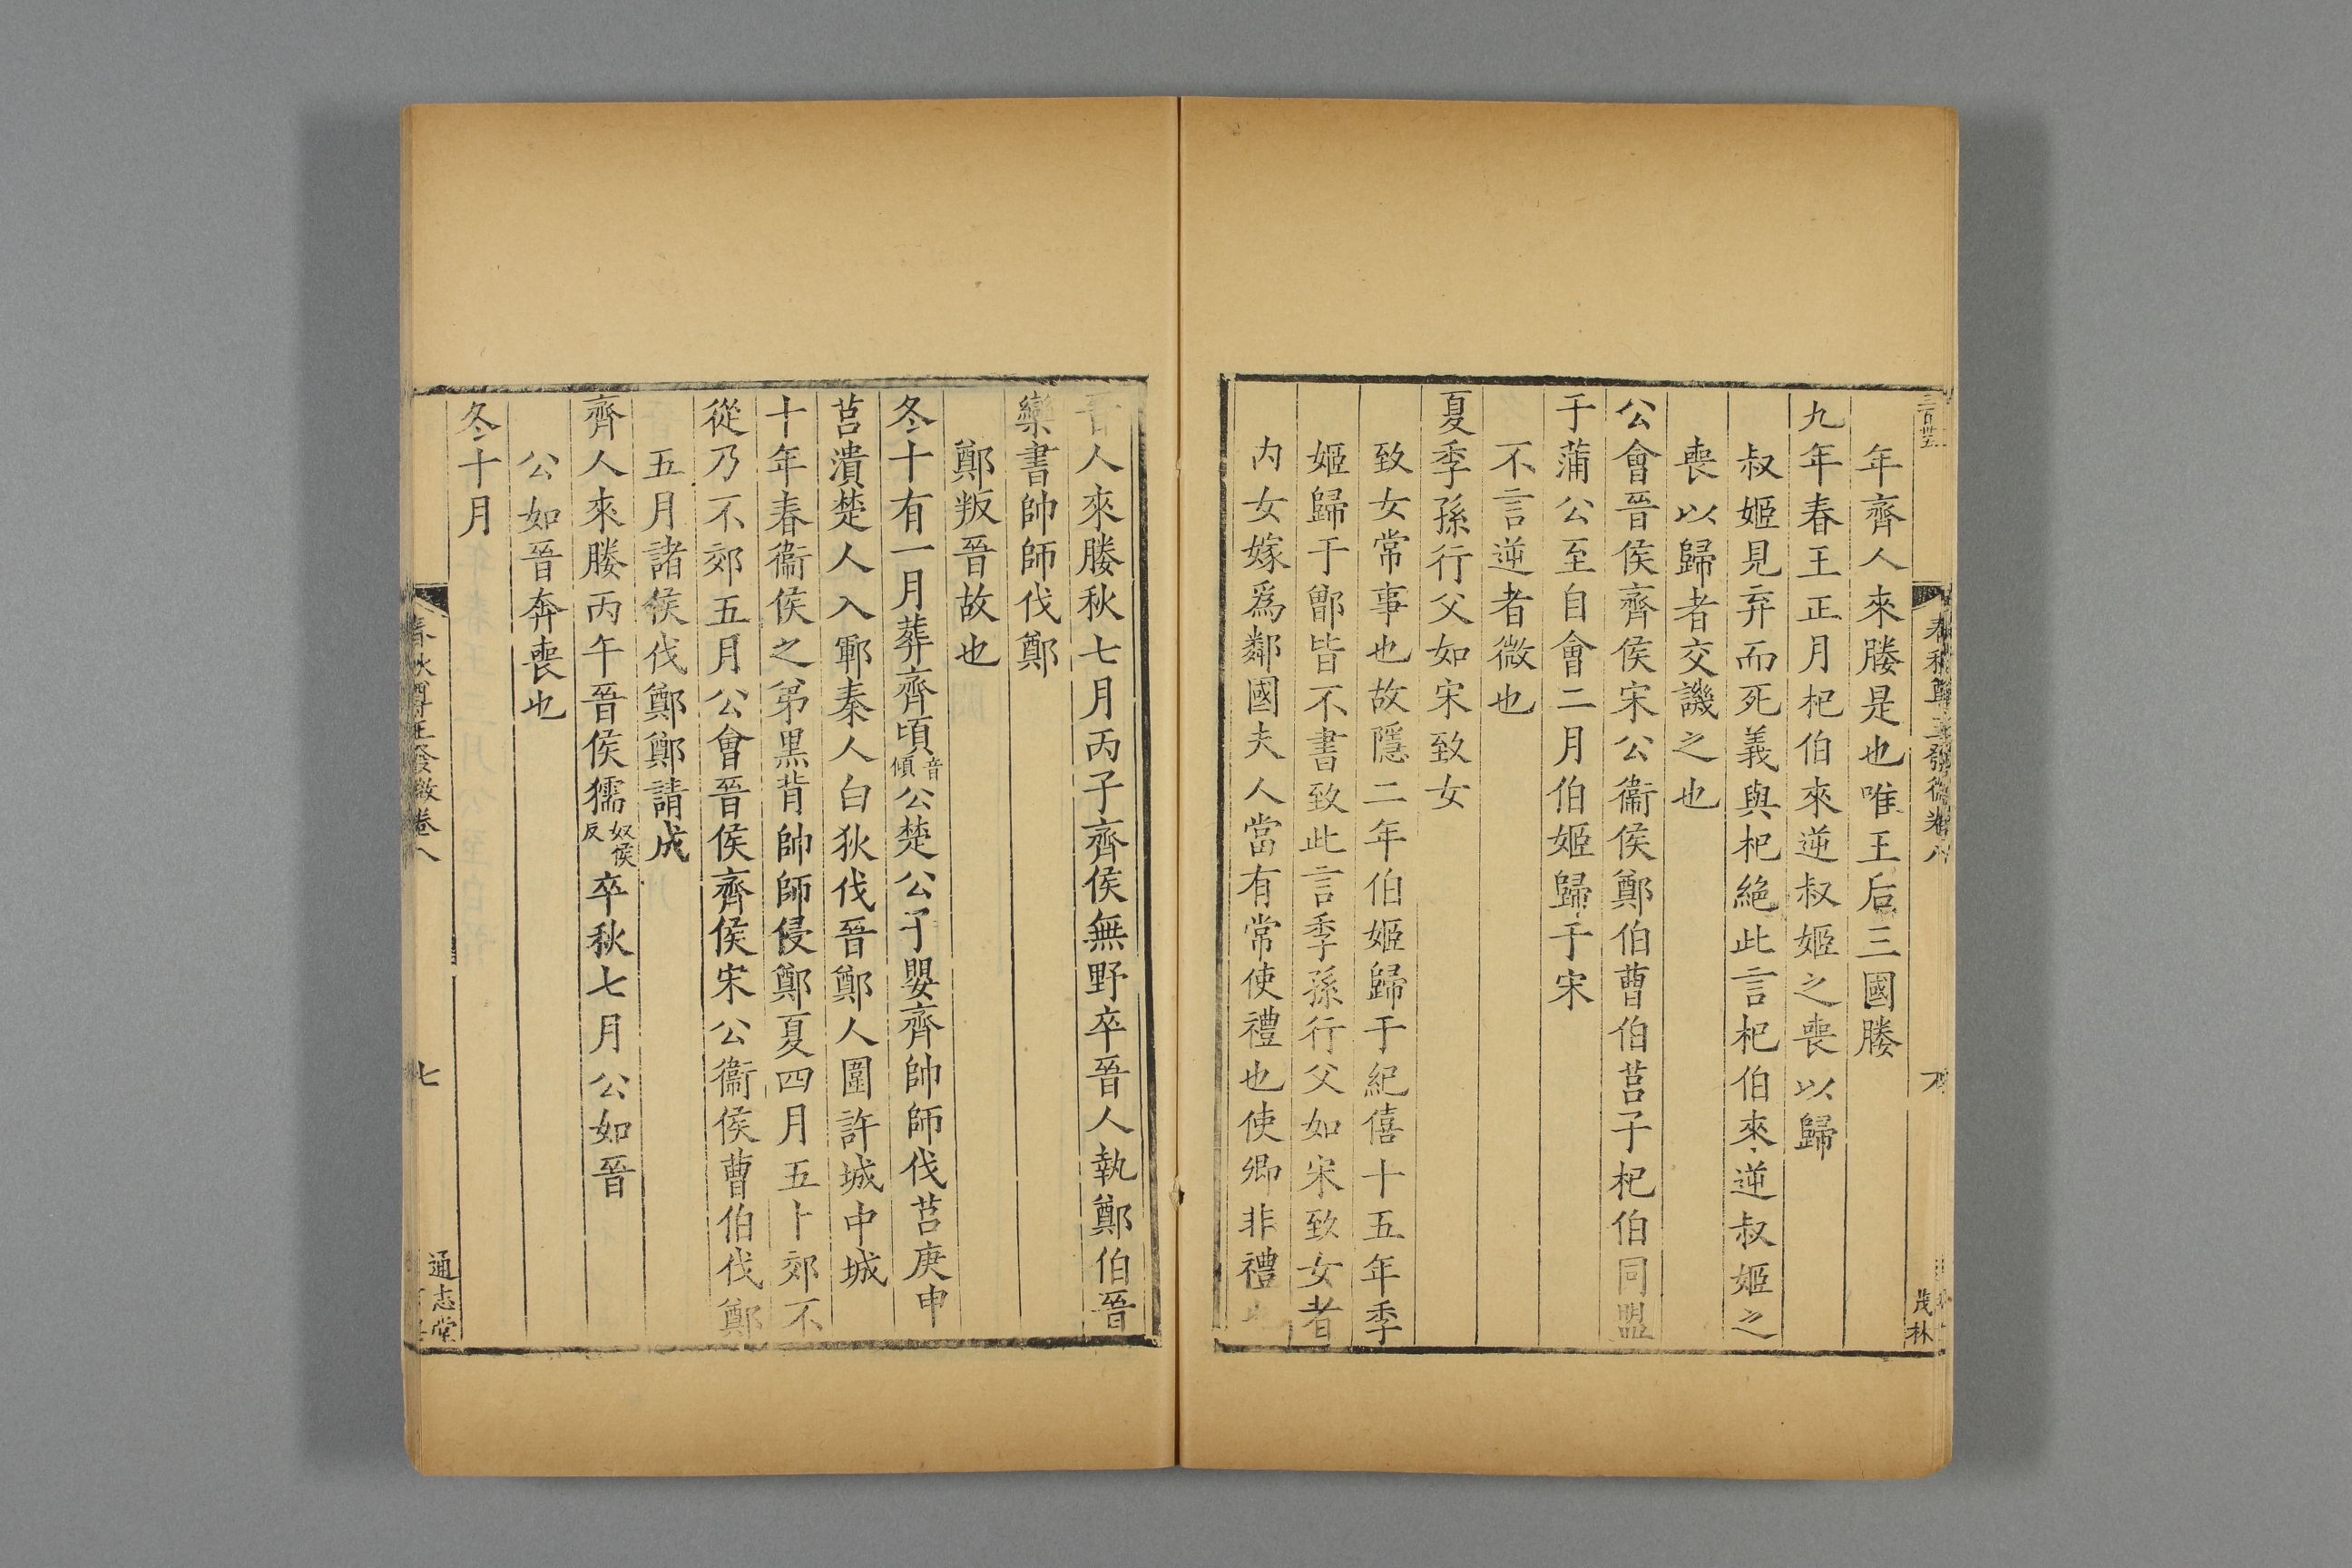 年齊人來媵是也唯王后三國媵
九年春王正月杞伯來逆叔姬之喪以歸
叔姬見弃而死義與杞絶此言杞伯來逆叔姬之
喪以歸者交譏之也
公會晉侯齊侯宋公衞侯鄭伯曹伯莒子杞伯同盟
于蒲公至自會二月伯姬歸于宋
不言逆者微也
夏季孫行父如宋致女
致女常事也故隱二年伯姬歸于紀僖十五年季
姬歸于鄫皆不書致此言季孫行父如宋致女者
内女嫁爲鄰國夫人當有常使禮也使卿非禮也
茂林
晉人來媵秋七月丙子齊侯無野卒晉人執鄭伯晉
欒書帥師伐鄭
鄭叛晉故也
冬十有一月葬齊頃音傾公楚公子嬰齊帥師伐莒庚申
莒潰楚人入鄆秦人白狄伐晉鄭人圍許城中城
十年春衞侯之弟黒背帥師侵鄭夏四月五卜郊不
從乃不郊五月公會晉侯齊侯宋公衞侯曹伯伐鄭
五月諸侯伐鄭鄭請成
齊人來媵丙午晉侯獳奴侯反卒秋七月公如晉
公如晉奔喪也
冬十月
春秋尊王發微卷八
七
通志堂